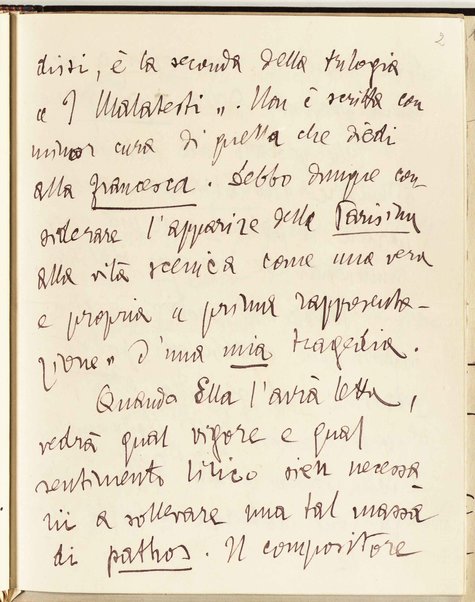 2
dissi, è la seconda della trilogia
« I Malatesti ». Non è scritta con
minor cura di quella che diedi
alla Francesca. Debbo dunque con-
siderare l'apparire della Parisina
alla vita scenica come una vera
e propria « prima rappresenta-
zione » d'una mia tragedia.
Quando Ella l'avrà letta,
vedrà qual vigore e qual
sentimento lirico sien necessa
rii a sollevare una tal massa
di pathos. Il compositore